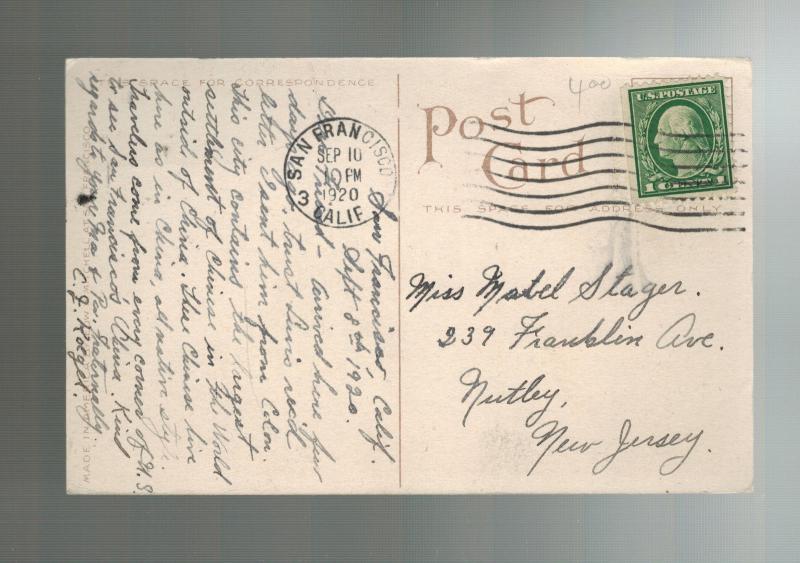 THIS SPACE FOR CORRESPONDENCE
San Francisco, Calif.
Sept 8th 1920.
Friend – arrived here few
days ago, trust Louis rec'd
letter I sent him from Colon.
This city contains the largest
settlement of Chinese in the World
outside of China. Here Chinese live
here as in China, all native style
travelers come from every corner of U.S.
to see San Francisco's China. Kind
regards to you, Ma & Pa. Fraternally,
C. J. Koegel.
SAN FRANCISCO
SEP 10
10 PM
1920
3 CALIF
400
Post
Card
THIS SPACE FOR ADDRESS ONLY
U.S. POSTAGE
1 CENTS 1
Miss Mabel Stager.
239 Franklin Ave.
Nutley,
New Jersey.
MADE IN